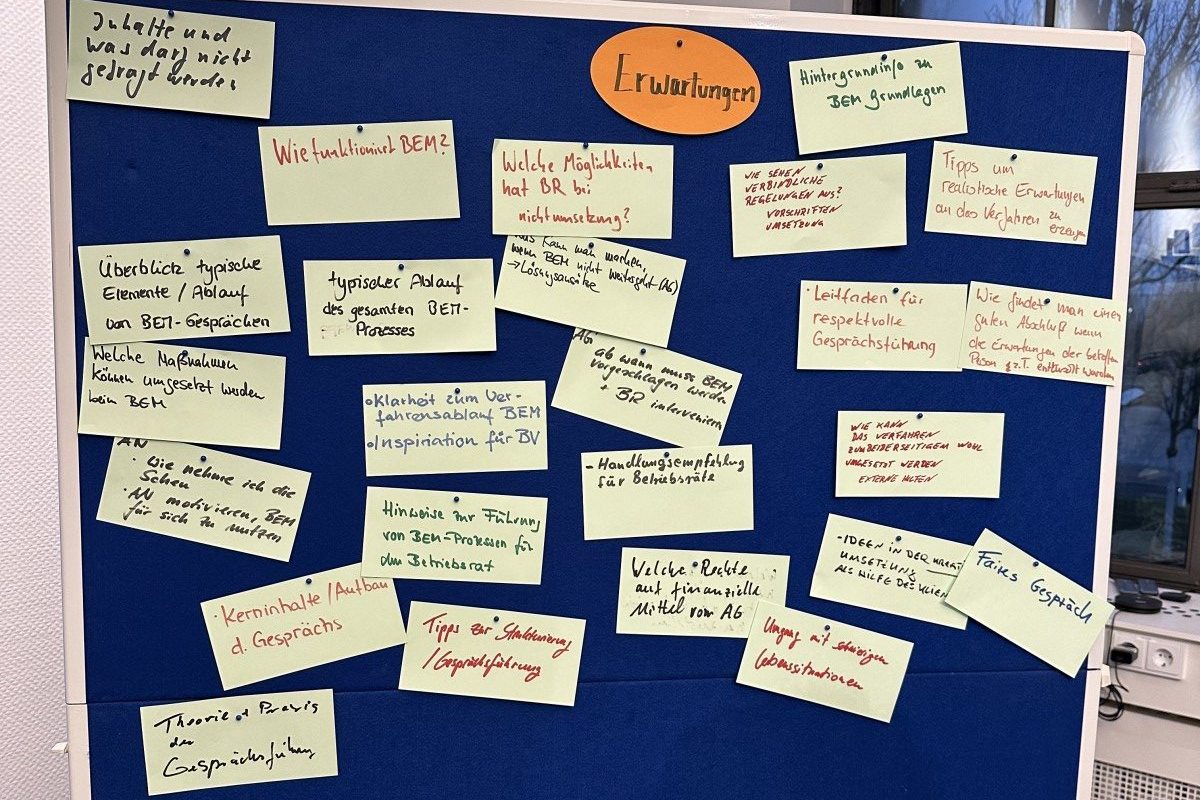 Inhalte und
was darf nicht
gefragt werden
Erwartungen
Hintergrundinfo zu
BEM Grundlagen
Wie funktioniert BEM?
Welche Möglichkeiten
hat BR bei
nichtumsetzung?
WIE SEHEN
VERBINDLICHE
REGELUNGEN AUS?
VORSCHRIFTEN
UMSETZUNG
Tipps um
realistische Erwartungen
an das Verfahren zu
erzeugen
Überblick typische
Elemente / Ablauf
von BEM-Gesprächen
typischer Ablauf
des gesamten BEM-
Prozesses
kann man machen,
wenn BEM nicht weitergeht (AG)
→ Lösungsansätze
· Leitfaden für
respektvolle
Gesprächsführung
Wie findet man einen
guten Abschluß wenn
die Erwartungen der
Person z.T. enttäuscht wurden
Welche Maßnahmen
können umgesetzt werden
beim BEM
• Klarheit zum Ver-
fahrensablauf BEM
• Inspiriation für BV
AG
ab wann muss BEM
vorgeschlagen werden
+ BR intervenieren
WIE KANN
DAS VERFAHREN
ZUM BEIDERSEITIGEM WOHL
UMGESETZT WERDEN
EXTERNE HILFEN
AN
· Wie nehme ich die
· AN motivieren, BEM
für sich zu nutzen
- Handlungsempfehlung
für Betriebsräte
Hinweise zur Führung
von BEM-Prozessen für
den Betriebsrat
Welche Rechte
auf finanzielle
Mittel vom AG
- IDEEN IN DER
UMSETZUNG
ALS HILFE DES
Faires Gespräch
· Kerninhalte / Aufbau
d. Gesprächs
Tipps zur Strukturierung
/ Gesprächsführung
Umgang mit schwierigen
Lebenssituationen
Theorie + Praxis
der
Gesprächsführung